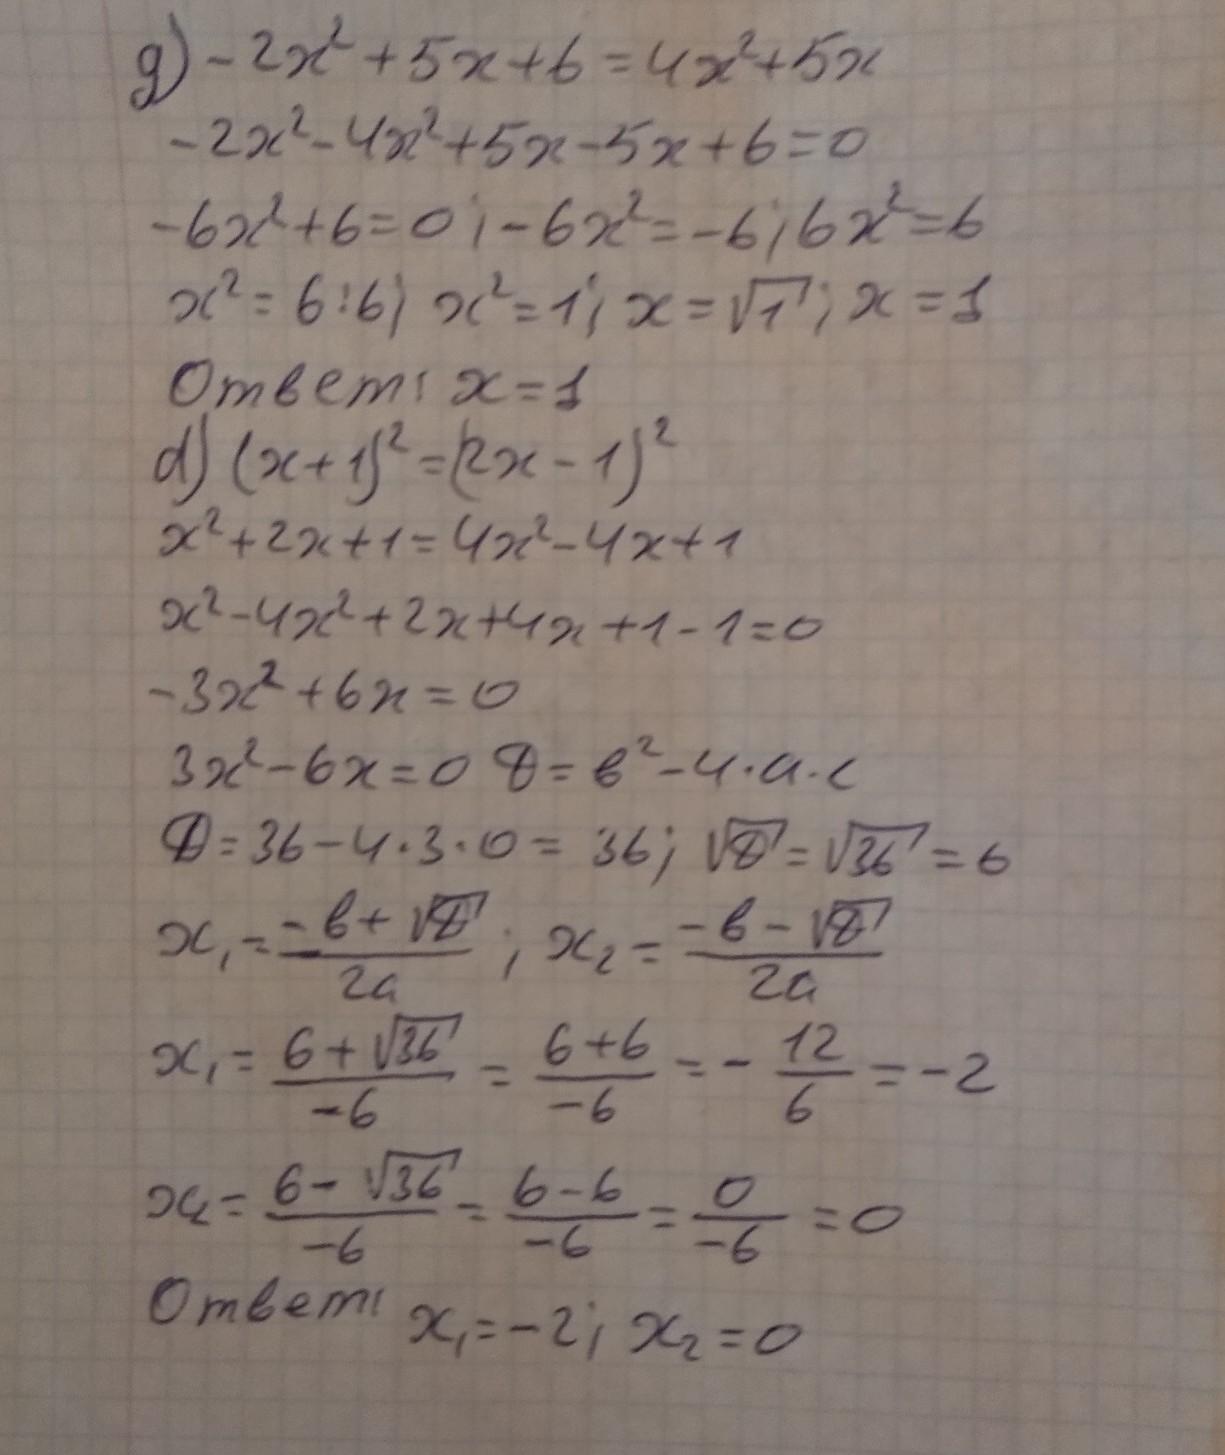 g) -2x² + 5x + 6 = 4x² + 5x
-2x² - 4x² + 5x - 5x + 6 = 0
-6x² + 6 = 0; -6x² = -6; 6x² = 6
x² = 6:6; x² = 1; x = √1; x = 1
Ответ: x = 1
d) (x+1)² = (2x-1)²
x² + 2x + 1 = 4x² - 4x + 1
x² - 4x² + 2x + 4x + 1 - 1 = 0
-3x² + 6x = 0
3x² - 6x = 0 D = в² - 4·a·c
D = 36 - 4·3·0 = 36; √D = √36 = 6
x₁ = (-в + √D)/2a; x₂ = (-в - √D)/2a
x₁ = (6 + √36)/-6 = (6+6)/-6 = - 12/6 = -2
x₂ = (6 - √36)/-6 = (6-6)/-6 = 0/-6 = 0
Ответ: x₁ = -2; x₂ = 0